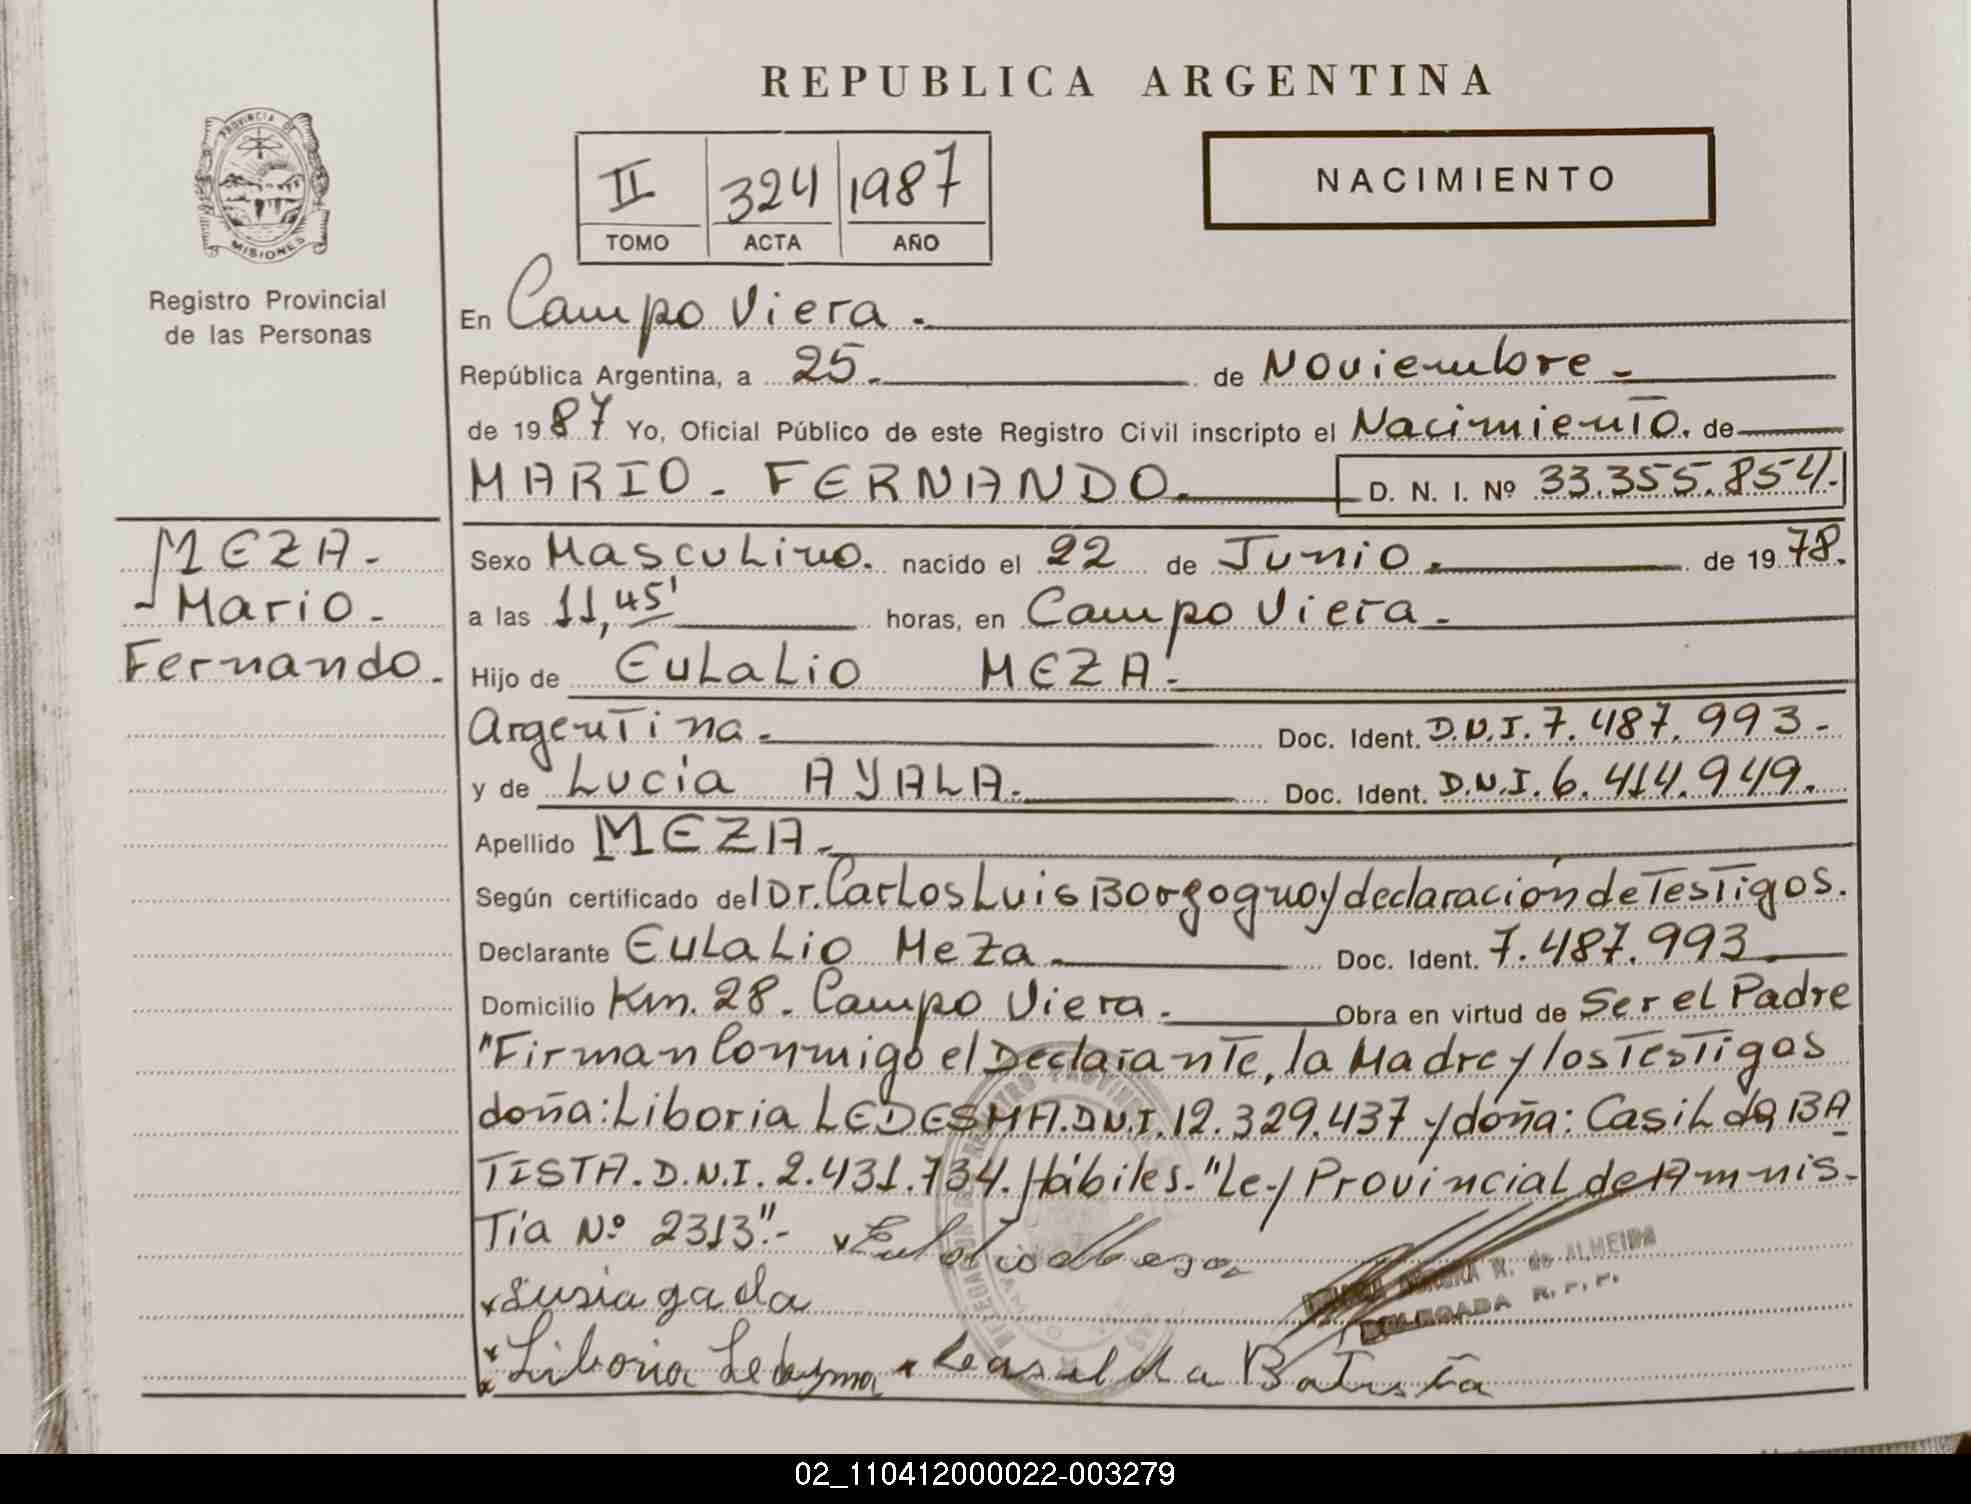 REPUBLICA ARGENTINA
PROVINCIA DE
MISIONES
Registro Provincial
de las Personas
II 324 1987
TOMO ACTA AÑO
NACIMIENTO
En Campo Viera.
República Argentina, a 25. de Noviembre.
de 1987 Yo, Oficial Público de este Registro Civil inscripto el Nacimiento. de
MARIO. FERNANDO. D. N. I. Nº 33.355.854.
MEZA.
Mario.
Fernando.
Sexo Masculino. nacido el 22 de Junio. de 1978.
a las 11,45' horas, en Campo Viera.
Hijo de Eulalio MEZA.
Argentina. Doc. Ident. D.N.I. 7.487.993.
y de Lucía AYALA. Doc. Ident. D.N.I. 6.414.949.
Apellido MEZA.
Según certificado del Dr. Carlos Luis Borgogno y declaración de Testigos.
Declarante Eulalio Meza. Doc. Ident. 7.487.993
Domicilio Km. 28. Campo Viera. Obra en virtud de Ser el Padre
"Firman Conmigo el Declarante, la Madre y los Testigos
doña: Liboria LEDESMA. D.N.I. 12.329.437 y doña: Casilda BA
TISTA. D.N.I. 2.431.734. Hábiles. "Ley Provincial de Amnis-
Tía Nº 2313".-
R. de ALMEIDA
DELEGADA R. P. P.
Liboria Ledesma Casilda Batista
02_110412000022-003279